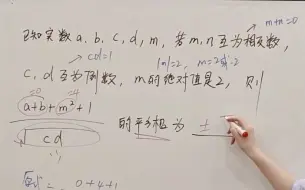 m+n=0
已知实数a、b、c、d、m,若m,n互为相反数,
cd=1
|m|=2, m=2或-2
c,d互为倒数,m的绝对值是2,则
=0 =4
a+b+m²+1
cd
的平方根为 ±
0+4+1